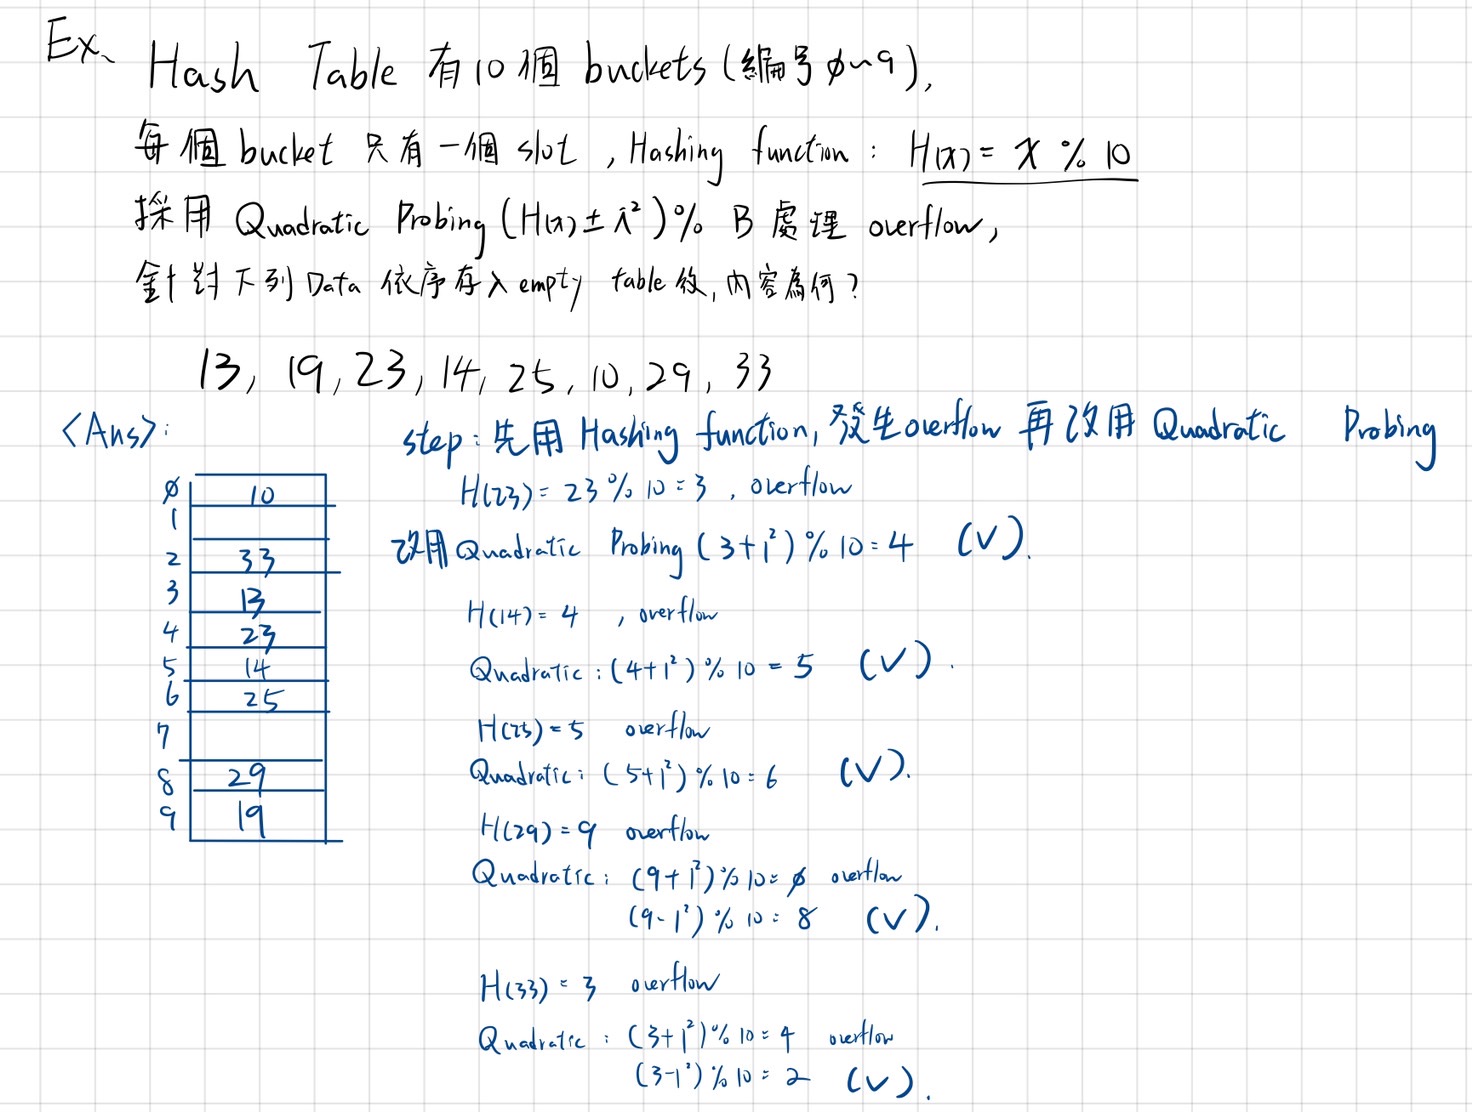 Ex、 Hash Table 有10個 buckets (編号 ø~9),
每個 bucket 只有一個 slot , Hashing function : H(x) = x % 10
採用 Quadratic Probing (H(x) ± i²) % B 處理 overflow,
針對下列 Data 依序存入 empty table 後, 內容為何?
13, 19, 23, 14, 25, 10, 29, 33
<Ans>:
step: 先用 Hashing function, 發生overflow 再改用 Quadratic Probing
ø 10
1
2 33
3 13
4 23
5 14
6 25
7
8 29
9 19
H(23) = 23 % 10 = 3 , overflow
改用 Quadratic Probing (3+1²) % 10 = 4 (V).
H(14) = 4 , overflow
Quadratic : (4+1²) % 10 = 5 (V).
H(25) = 5 overflow
Quadratic: (5+1²) % 10 = 6 (V).
H(29) = 9 overflow
Quadratic: (9+1²) % 10 = ø overflow
(9-1²) % 10 = 8 (V).
H(33) = 3 overflow
Quadratic : (3+1²) % 10 = 4 overflow
(3-1²) % 10 = 2 (V).